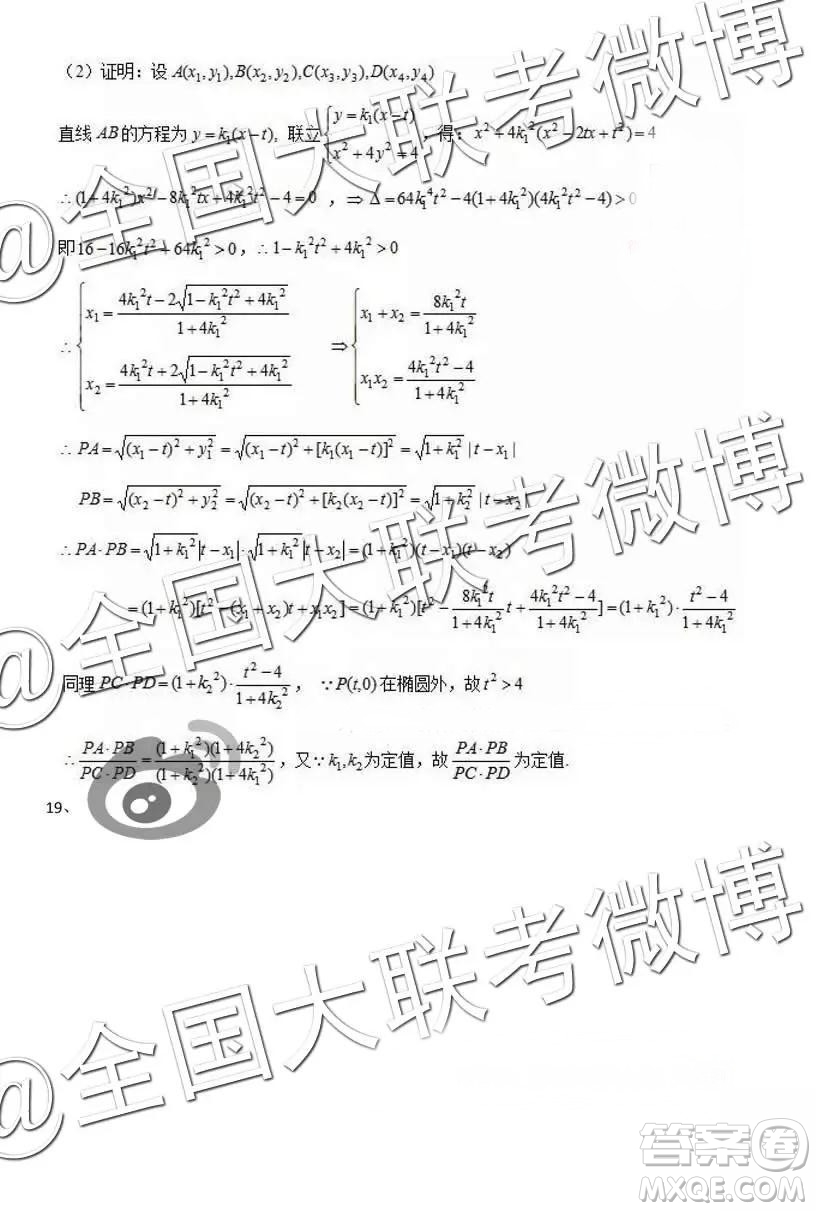 （2）证明：设 A(x₁,y₁),B(x₂,y₂),C(x₃,y₃),D(x₄,y₄)
直线 AB 的方程为 y=k₁(x−t), 联立 {y=k₁(x−t) x²+4y²=4 , 得：x²+4k₁²(x²−2tx+t²)=4
∴(1+4k₁²)x²−8k₁²tx+4k₁²t²−4=0 ，⇒Δ=64k₁⁴t²−4(1+4k₁²)(4k₁²t²−4)>0
即16−16k₁²t²+64k₁²>0，∴1−k₁²t²+4k₁²>0
∴ {x₁=(4k₁²t−2√(1−k₁²t²+4k₁²))/(1+4k₁²) x₂=(4k₁²t+2√(1−k₁²t²+4k₁²))/(1+4k₁²) ⇒ {x₁+x₂=8k₁²t/(1+4k₁²) x₁x₂=(4k₁²t²−4)/(1+4k₁²)
∴PA=√((x₁−t)²+y₁²)=√((x₁−t)²+[k₁(x₁−t)]²)=√(1+k₁²)|t−x₁|
PB=√((x₂−t)²+y₂²)=√((x₂−t)²+[k₂(x₂−t)]²)=√(1+k₂²)|t−x₂|
∴PA·PB=√(1+k₁²)|t−x₁|·√(1+k₁²)|t−x₂|=(1+k₁²)(t−x₁)(t−x₂)
=(1+k₁²)[t²−(x₁+x₂)t+x₁x₂]=(1+k₁²)[t²−8k₁²t/(1+4k₁²) t+(4k₁²t²−4)/(1+4k₁²)]=(1+k₁²)·(t²−4)/(1+4k₁²)
同理 PC·PD=(1+k₂²)·(t²−4)/(1+4k₂²)， ∵P(t,0)在椭圆外，故 t²>4
∴(PA·PB)/(PC·PD)=(1+k₁²)(1+4k₂²)/(1+k₂²)(1+4k₁²)，又∵k₁,k₂为定值，故(PA·PB)/(PC·PD)为定值.
19、
@全国大联考微博
@全国大联考微博
@全国大联考微博
答案卷
MXQE.COM